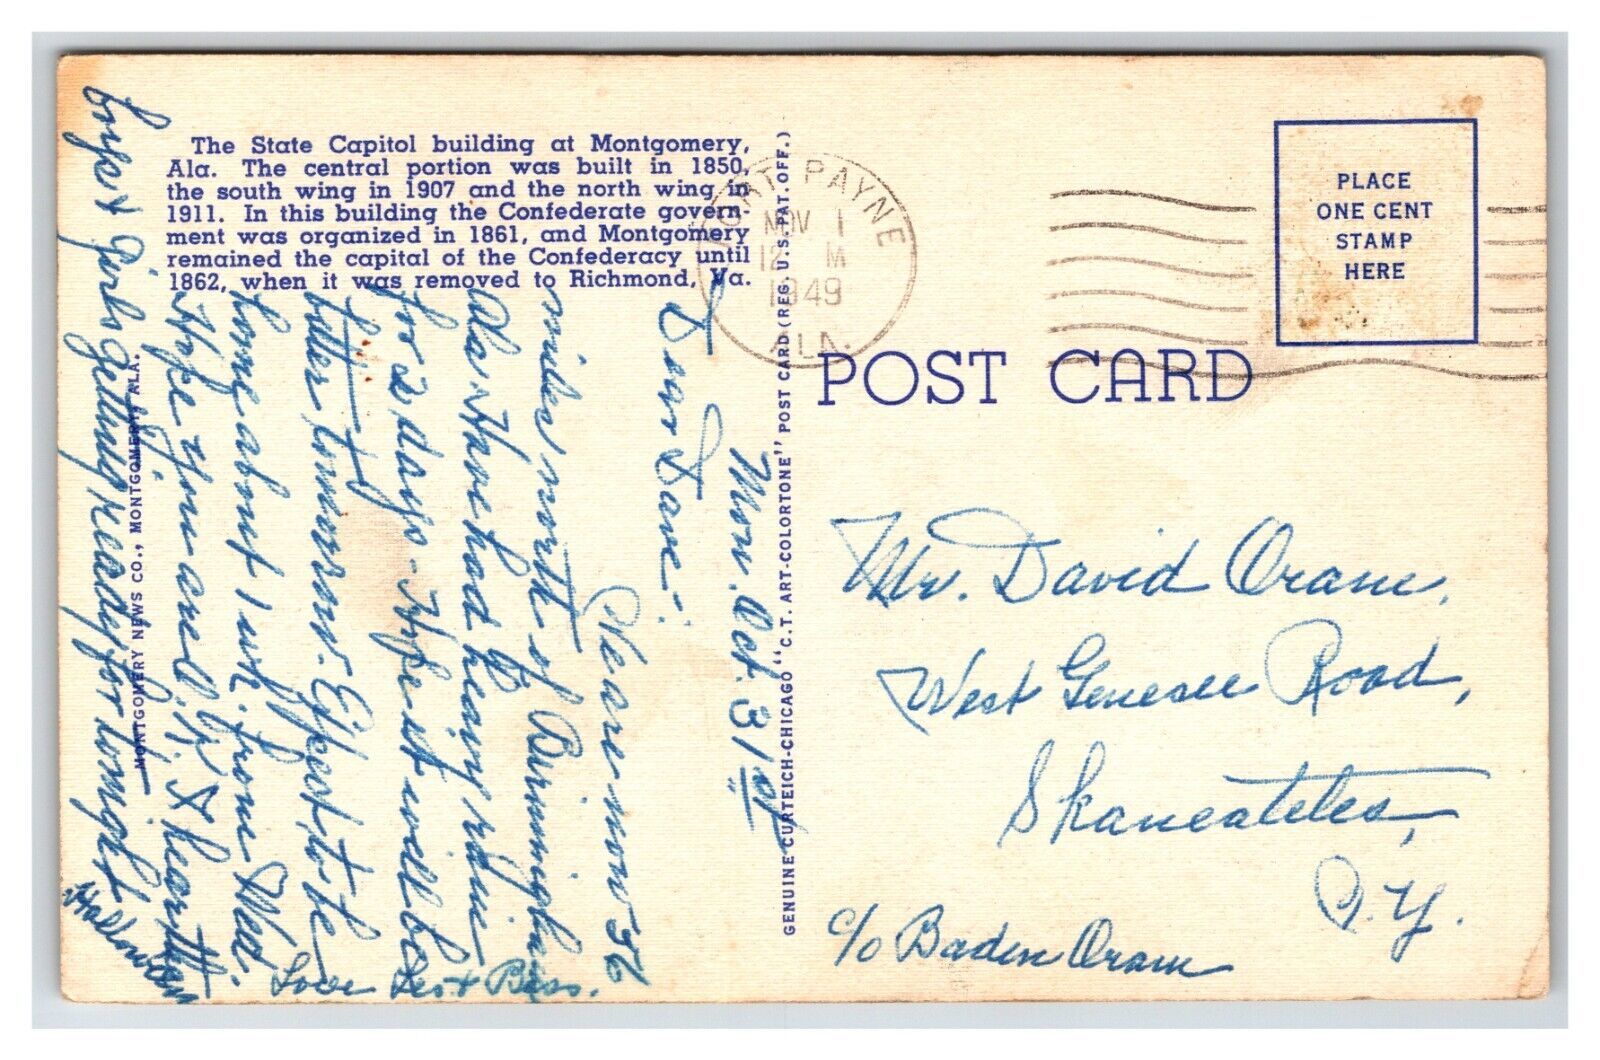 The State Capitol building at Montgomery,
Ala. The central portion was built in 1850,
the south wing in 1907 and the north wing in
1911. In this building the Confederate govern-
ment was organized in 1861, and Montgomery
remained the capital of the Confederacy until
1862, when it was removed to Richmond, Va.
Mon. Oct. 31st
Dear Dave:-
We are now 56
miles north of Birmingham
Ala. Have had heavy rain
for 2 days - Hope it will be
better tomorrow. Expect to be
home about 1 wk. from Wed.
Hope you are O.K. & hear the
boys & girls getting ready for tonight
Hallowe'en
Love & Bess.
MONTGOMERY NEWS CO., MONTGOMERY, ALA.
GENUINE CURTEICH-CHICAGO "C.T. ART-COLORTONE" POST CARD (REG. U.S. PAT. OFF.)
FORT PAYNE
NOV 1
12 M
1949
ALA.
PLACE
ONE CENT
STAMP
HERE
POST CARD
Mr. David Oram,
West Genesee Road,
Skaneateles,
N.Y.
c/o Baden Oram